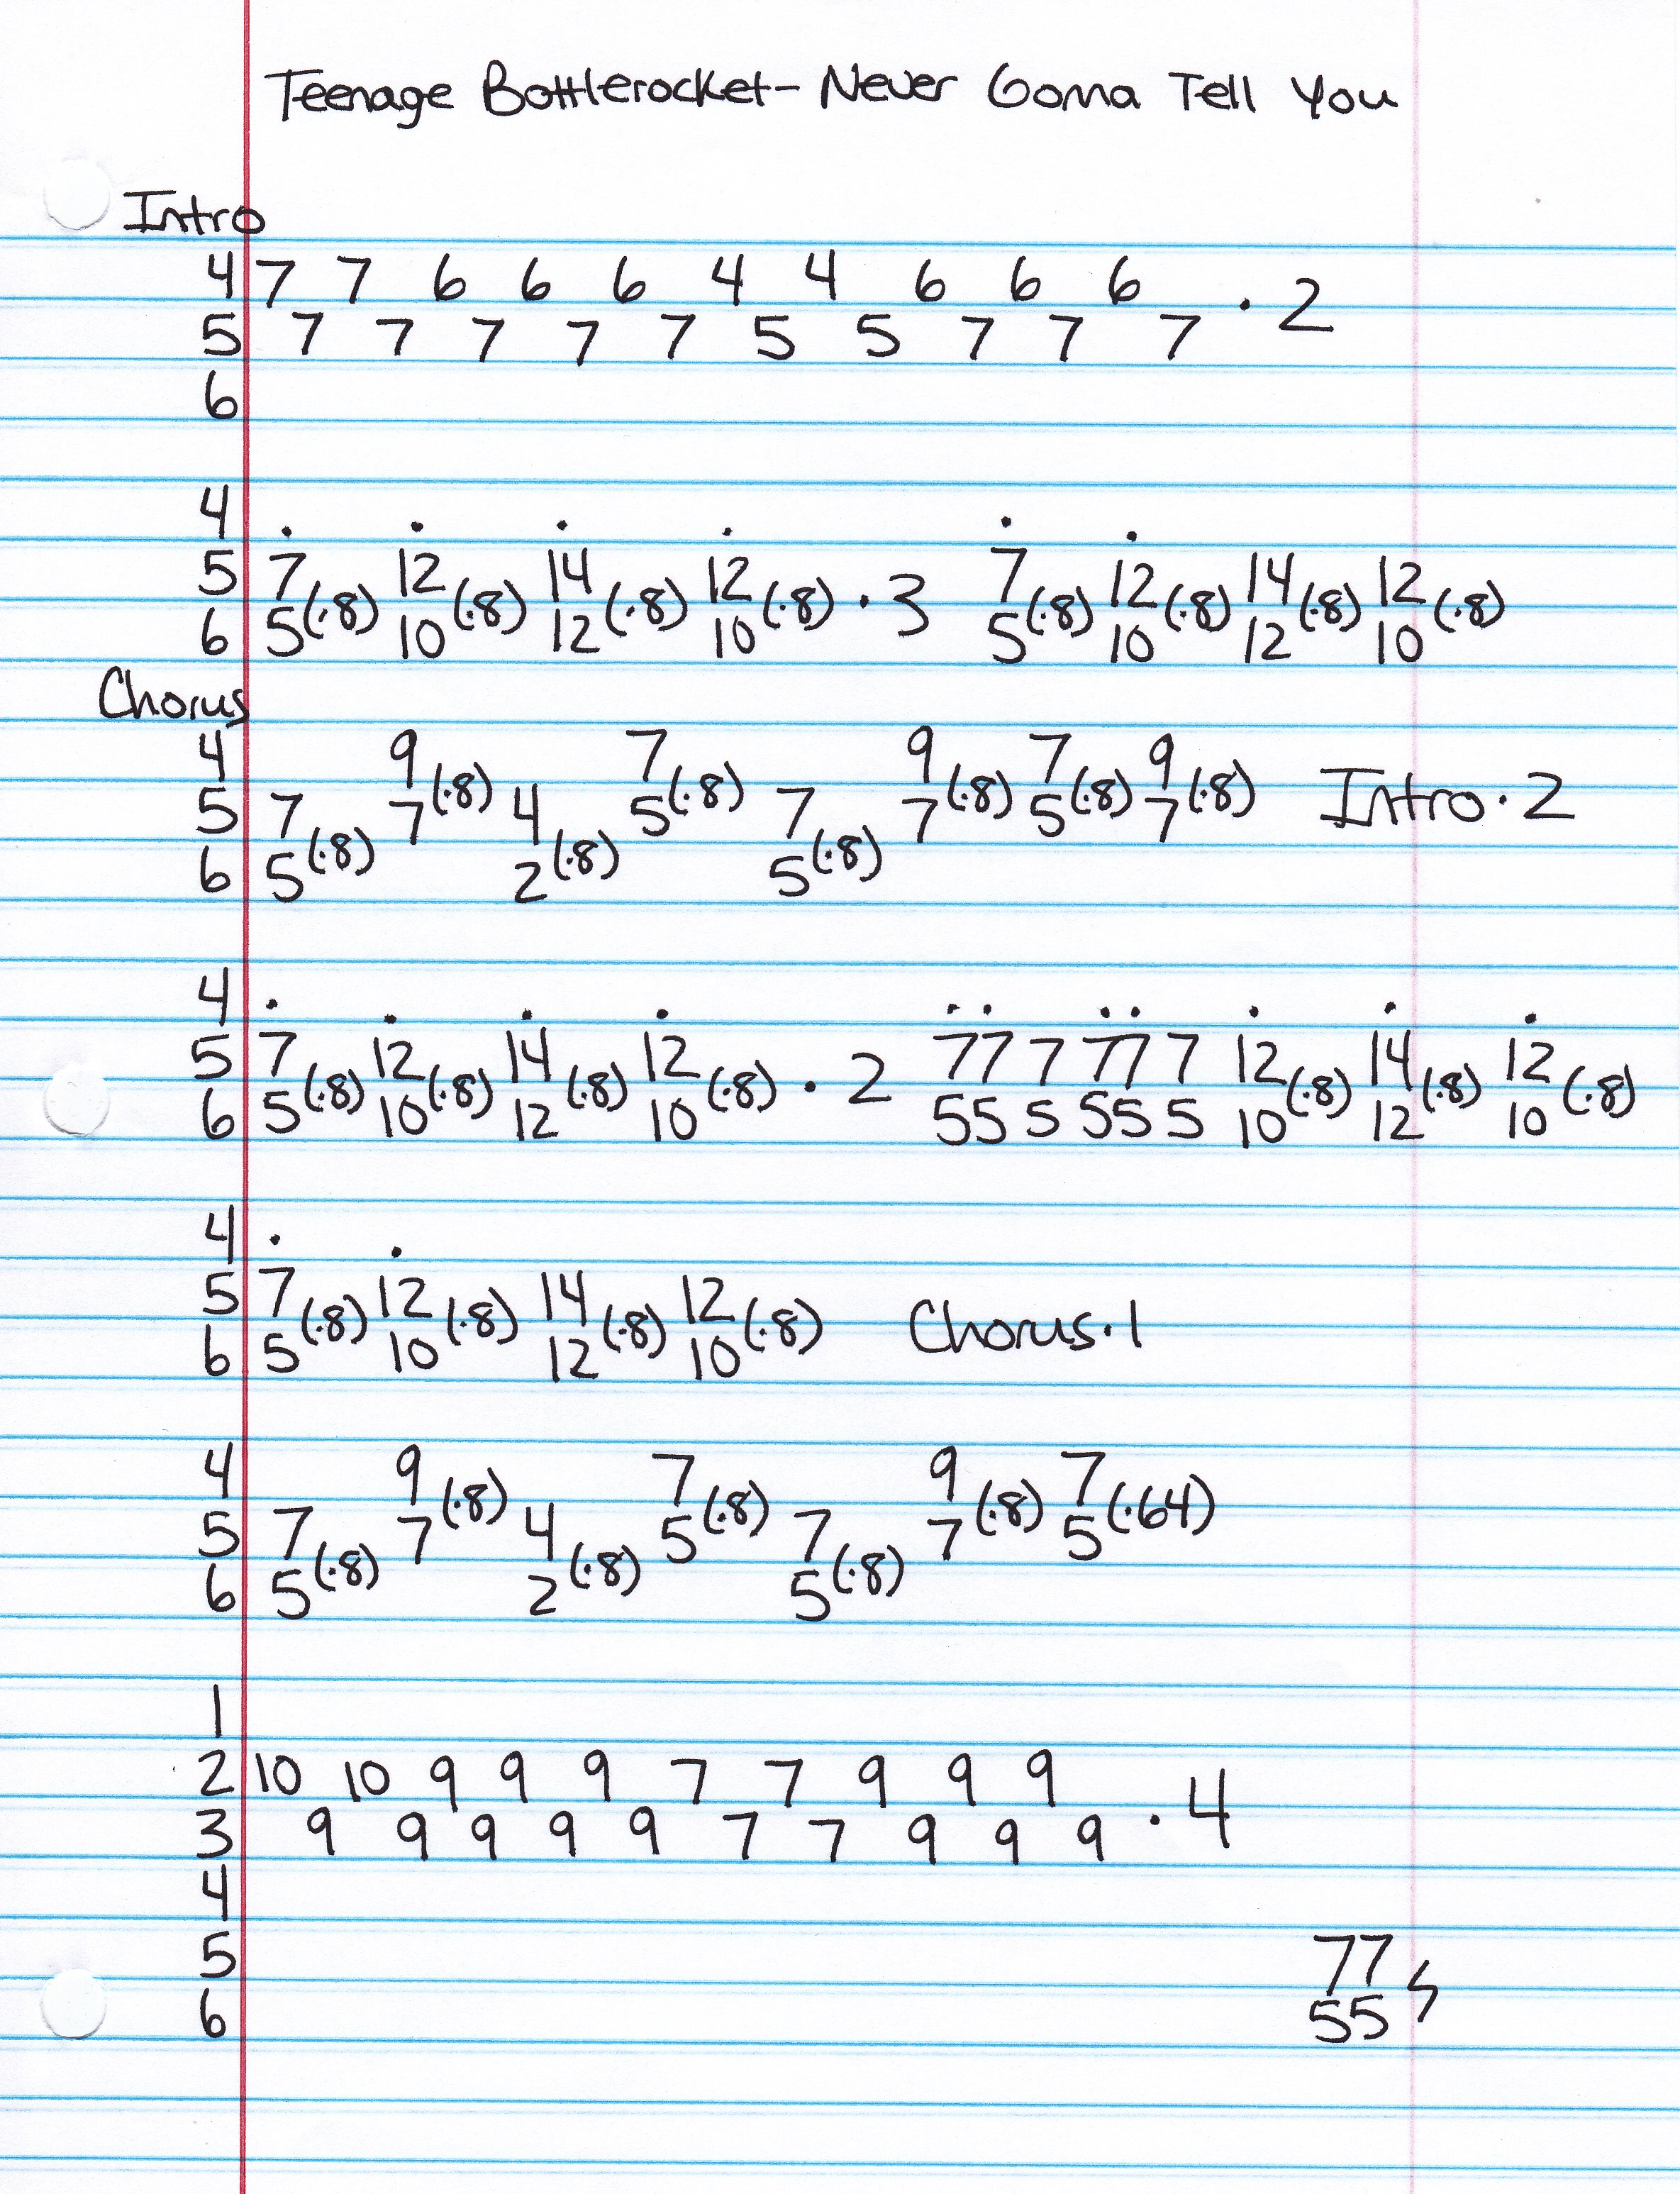 Teenage Bottlerocket - Never Gonna Tell You
Intro
4 7 7 6 6 6 4 4 6 6 6 · 2
5 7 7 7 7 7 5 5 7 7 7
6
4 · · · · · ·
5 7 (·8) 12 (·8) 14 (·8) 12 (·8) · 3 7 (·8) 12 (·8) 14 (·8) 12 (·8)
6 5 10 12 10 5 10 12 10
Chorus
4 9 (·8) 7 (·8) 9 (·8) 7 (·8) 9 (·8) Intro · 2
5 7 (·8) 7 4 (·8) 5 7 (·8) 7 5 7
6 5 2 5
4 · · · · ·· ·· · · ·
5 7 (·8) 12 (·8) 14 (·8) 12 (·8) · 2 77 7 77 7 12 (·8) 14 (·8) 12 (·8)
6 5 10 12 10 55 5 55 5 10 12 10
4 · ·
5 7 (·8) 12 (·8) 14 (·8) 12 (·8) Chorus · 1
6 5 10 12 10
4 9 (·8) 7 (·8) 9 (·8) 7 (·64)
5 7 (·8) 7 4 (·8) 5 7 (·8) 7 5
6 5 2 5
1
2 10 10 9 9 9 7 7 9 9 9 · 4
3 9 9 9 9 9 7 7 9 9 9
4
5 77
6 55